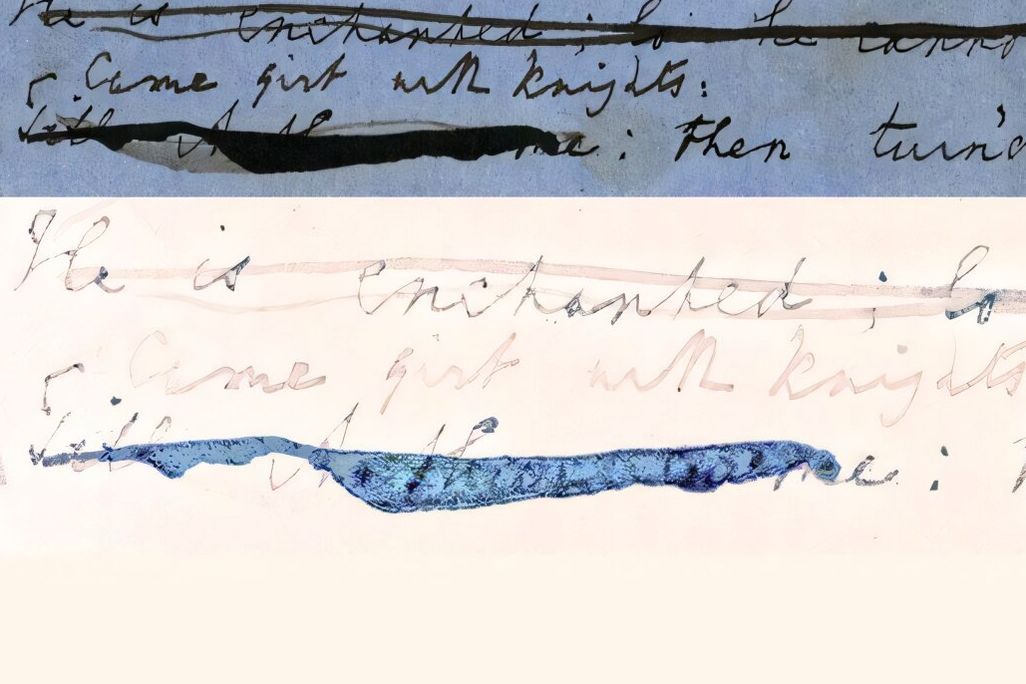 He is enchanted; lo he canno
Came girt with knights:
: then turn'd
He is enchanted; lo
Came girt with knights
: